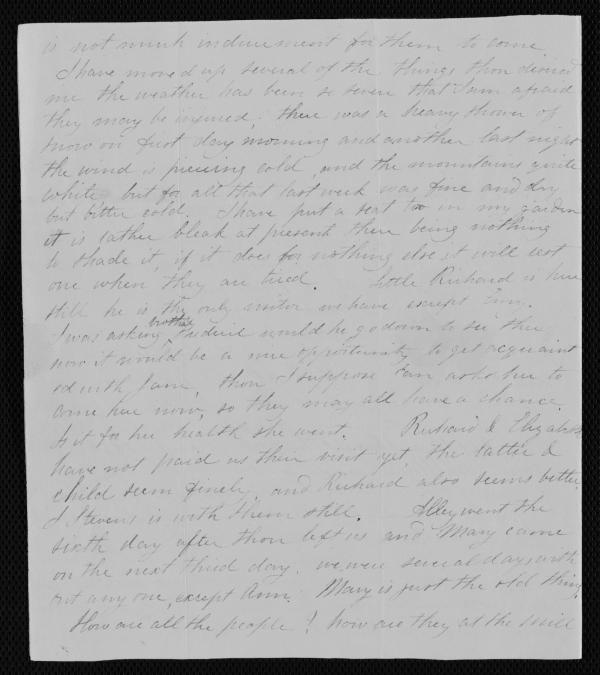 is not much inducement for them to come.
I have moved up several of the things thou desired
me the weather has been so severe that I am afraid
they may be injured; there was a heavy shower of
snow on first day morning and another last night
the wind is piercing cold, and the mountains quite
white but for all that last week was fine and dry
but bitter cold. I have put a seat too in my garden
it is rather bleak at present there being nothing
to shade it, if it does for nothing else it will rest
one when they are tired. Little Richard is here
still he is the only visitor we have except
I was asking brother Frederic would he go down to see thee
now it would be a nice opportunity to get acquaint
ed with Jam, thou I suppose can ask her to
come here now, so they may all have a chance.
Is it for her health she went. Richard & Elizabeth
have not paid us their visit yet, the latter &
child seem finely, and Richard also seems better,
J Stevens is with them still. Alley went the
sixth day after thou left us and Mary came
on the next third day. we were several days with
out any one, except Ann. Mary is just the old thing
How are all the people! how are they at the Mill